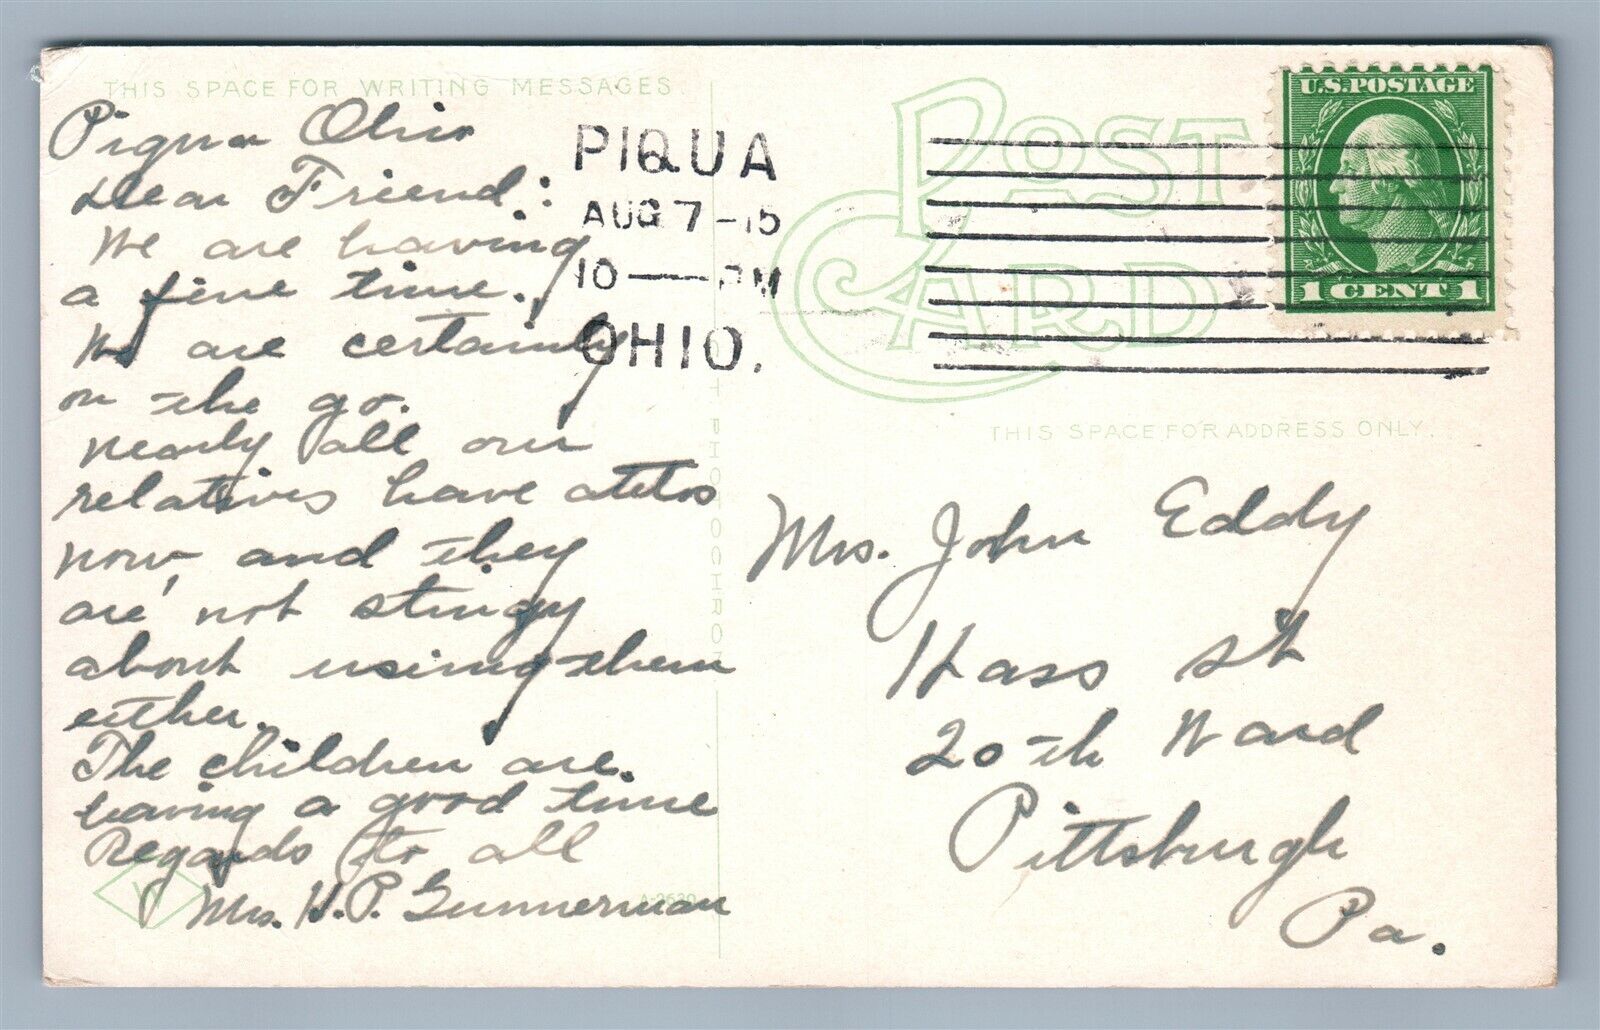 THIS SPACE FOR WRITING MESSAGES
Piqua Ohio
Dear Friend:
We are having
a fine time.
We are certainly
on the go.
nearly all our
relatives have autos
now, and they
are not stingy
about using them
either.
The children are.
having a good time
Regards to all
Mrs. H. P. Gunnerman
PIQUA
AUG 7-15
10 — PM
OHIO.
POST CARD
U.S. POSTAGE
1 CENT 1
THIS SPACE FOR ADDRESS ONLY.
Mrs. John Eddy
Hass St
20th Ward
Pittsburgh
Pa.